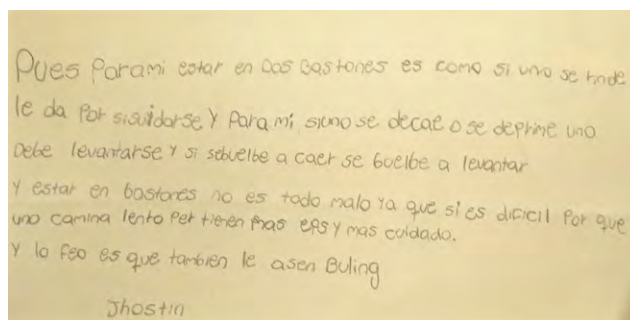 Pues Para mi estar en Dos Bastones es como si uno se rinde
le da por sisuidarse y Para mi siuno se decae o se deprime uno
Debe levantarse y si sebuelbe a caer se buelbe a levantar
y estar en bastones no es todo malo ya que si es dificil Por que
uno camina lento Per tienen mas y mas cuidado.
y lo feo es que tambien le asen Buling
Jhostin